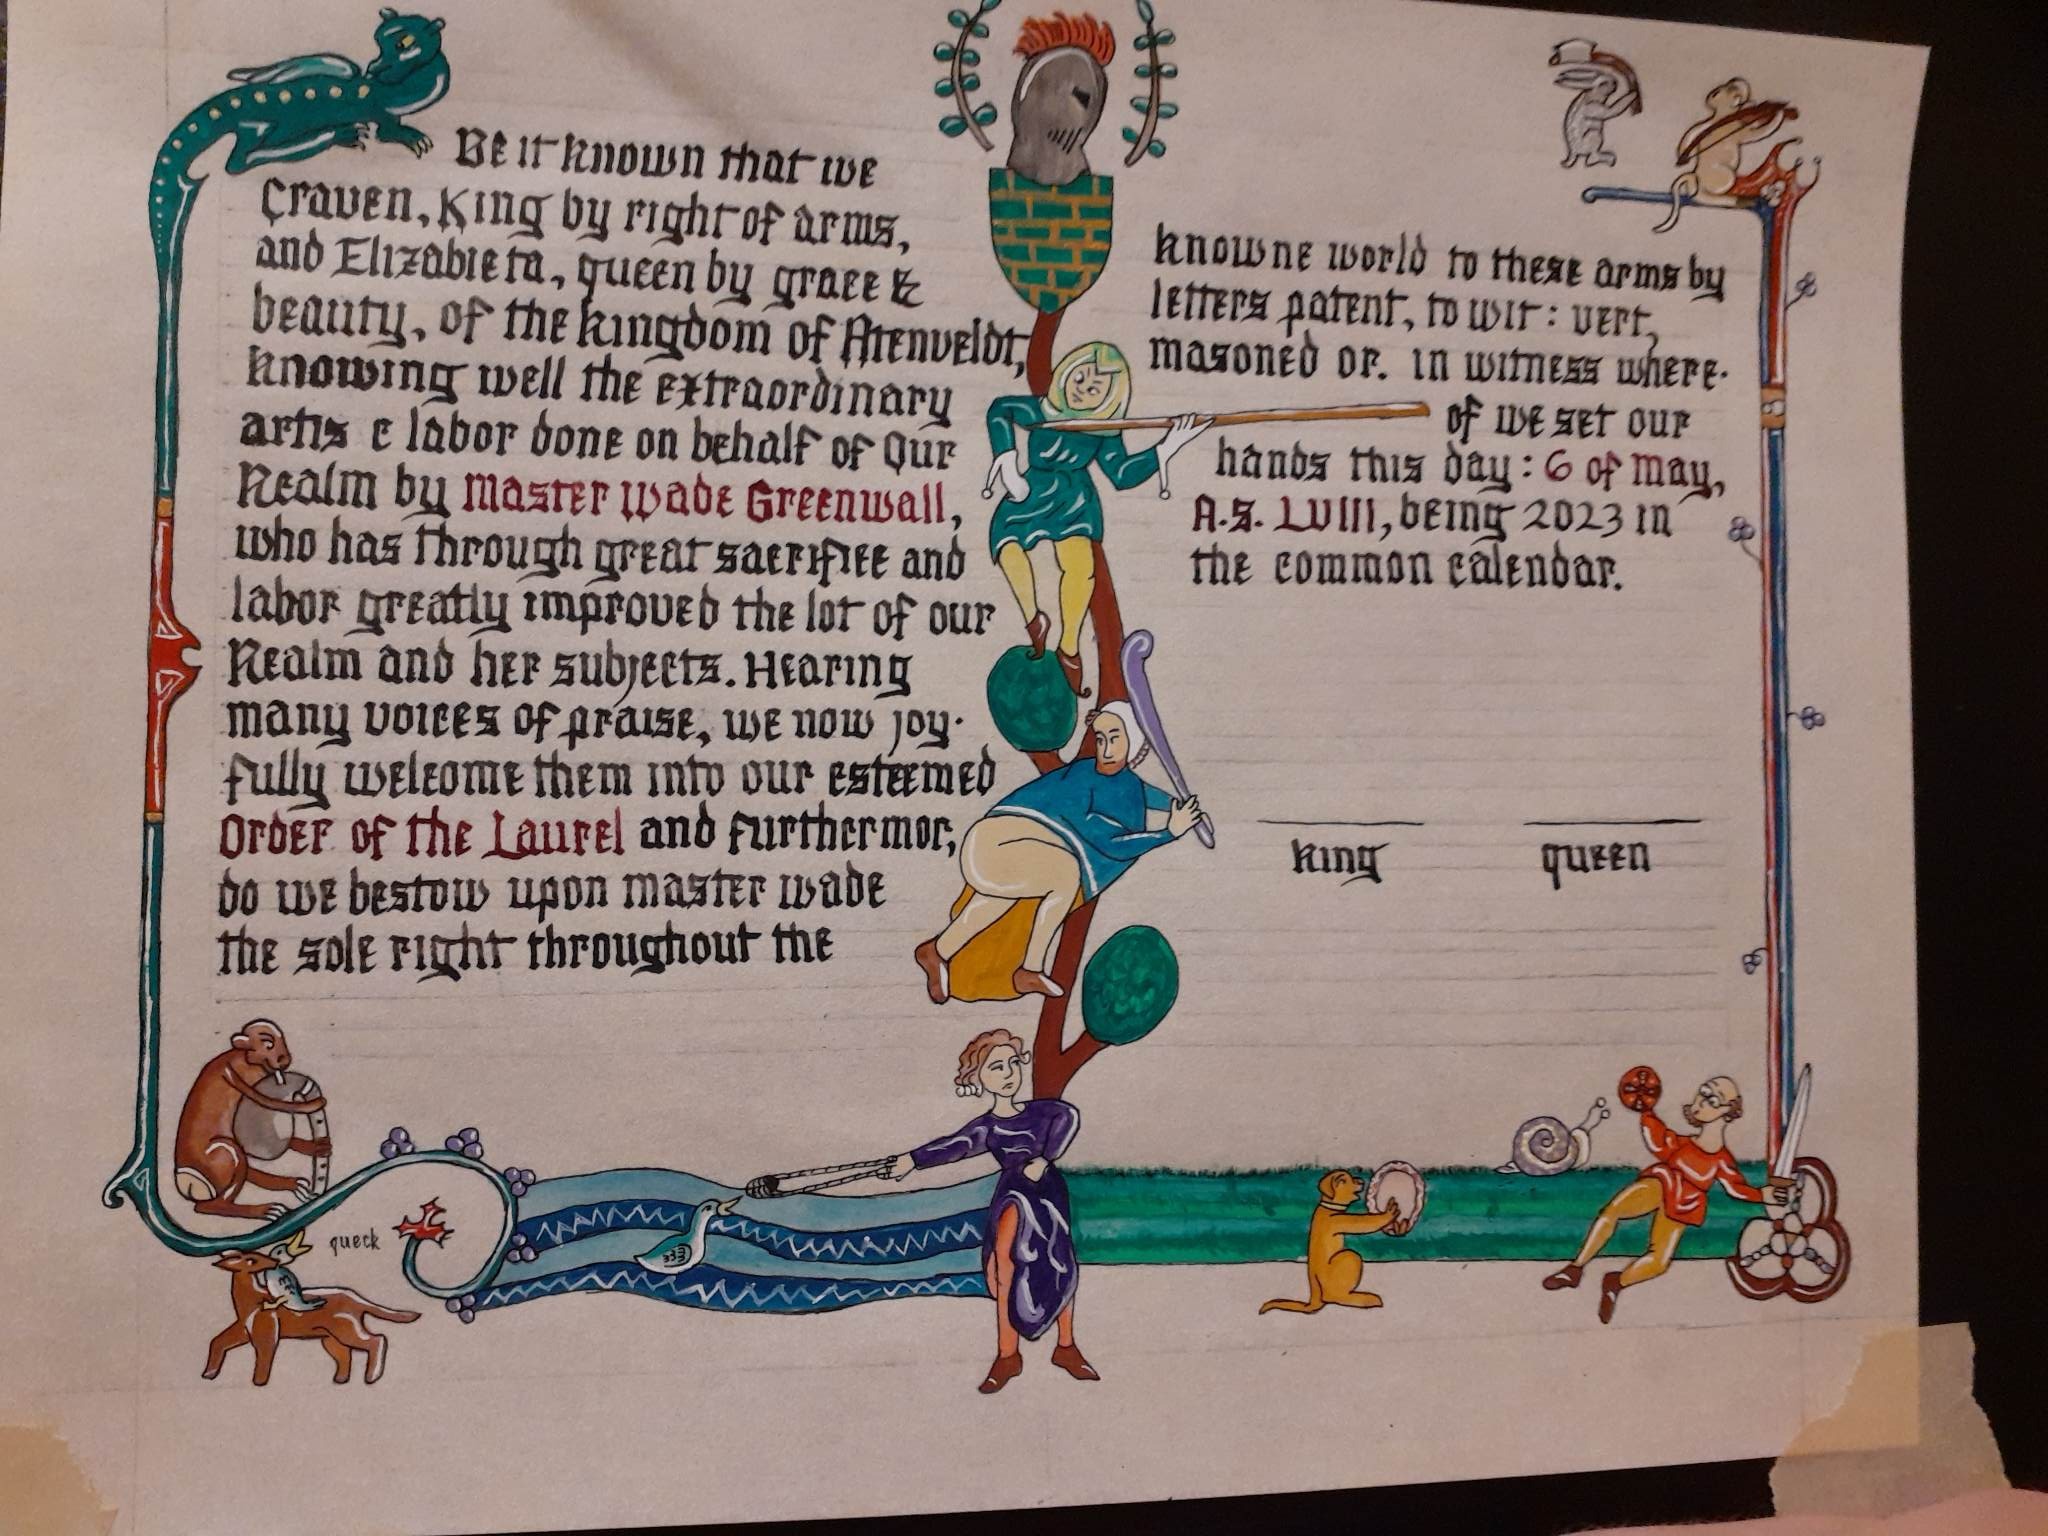 Be it known that we
Craven, King by right of arms,
and Elizabieta, queen by grace &
beauty, of the kingdom of Atenveldt,
knowing well the extraordinary
artis & labor done on behalf of Our
Realm by Master Wade Greenwall,
who has through great sacrifice and
labor greatly improved the lot of our
Realm and her subjects. Hearing
many voices of praise, we now joy-
fully welcome them into our esteemed
Order of the Laurel and furthermor,
do we bestow upon master wade
the sole right throughout the
knowne world to these arms by
letters patent, to wit: vert,
masoned or. in witness where-
of we set our
hands this day: 6 of May,
A.S. LVIII, being 2023 in
the common calendar.
king queen
queck